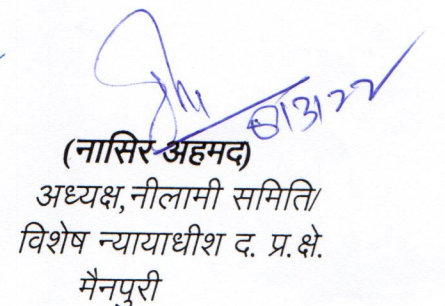 (नासिर अहमद)
अध्यक्ष,नीलामी समिति/
विशेष न्यायाधीश द. प्र.क्षे.
मैनपुरी